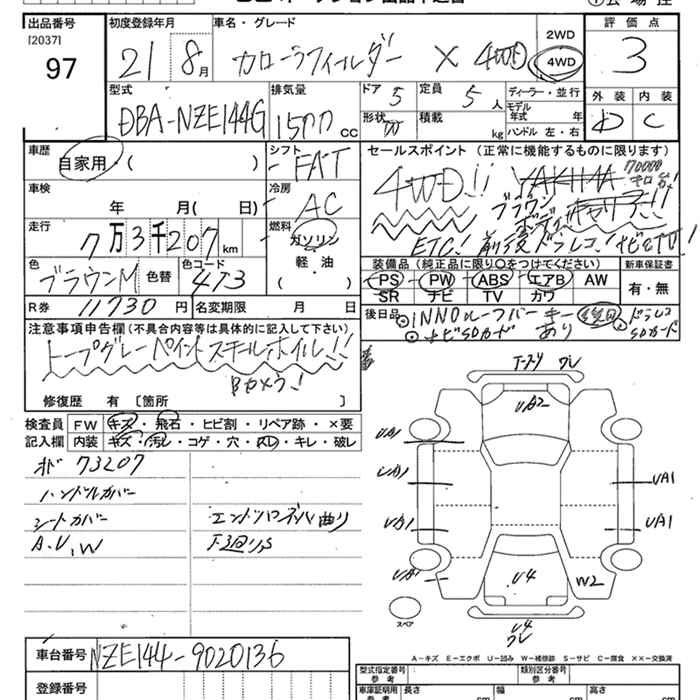 出品番号
[2037]
97
初度登録年月
21 8月
車名・グレード
カローラフィールダー X 4WD
2WD
4WD
評価点
3
外装 内装
D C
型式
DBA-NZE144G
排気量
1500 cc
ドア 5
形状 W
定員 5人
積載 kg
ディーラー・並行
モデル年式 年
ハンドル 左・右
車歴
自家用・( )
車検
年 月( 日)
走行
7万3千207km
色
ブラウンM
色替
色コード
4T3
R券 11730円
名変期限 月 日
シフト
FAT
冷房
AC
燃料
ガソリン
軽・油
( )
セールスポイント (正常に機能するものに限ります)
4WD!!
70000キロ台!
ブラウン
ボディ
ETC! 前後ドラレコ! ナビ&TV!
装備品(純正品に限り○をつけてください)
PS PW ABS エアB AW
SR ナビ TV カワ
新車保証書
有・無
後日品
INNOルーフバー キーあり
ナビSDカード
ドラレコSDカード
注意事項申告欄(不具合内容等は具体的に記入して下さい)
トープグレーペイントスチールホイル!!
Bカメラ!
修復歴 有 [箇所 ]
検査員記入欄
FW キズ・飛石・ヒビ割・リペア跡・×要
内装 キズ・汚レ・コゲ・穴・スレ・キレ・破レ
オド 73207
ハンドルカバー
シートカバー
A.U.W
エンドパネル曲り
下廻りS
ワレ
UA2
UA1
UA1
UA1
UA1
UA1
UA1
U4
W2
U4
ワレ
スペア
A－キズ E－エクボ U－凹み W－補修跡 S－サビ C－腐食 ××－交換済
車台番号
NZE144-9020136
登録番号
型式指定番号
参考
類別区分番号
参考
車庫証明用
参考
長さ cm
幅 cm
高さ cm